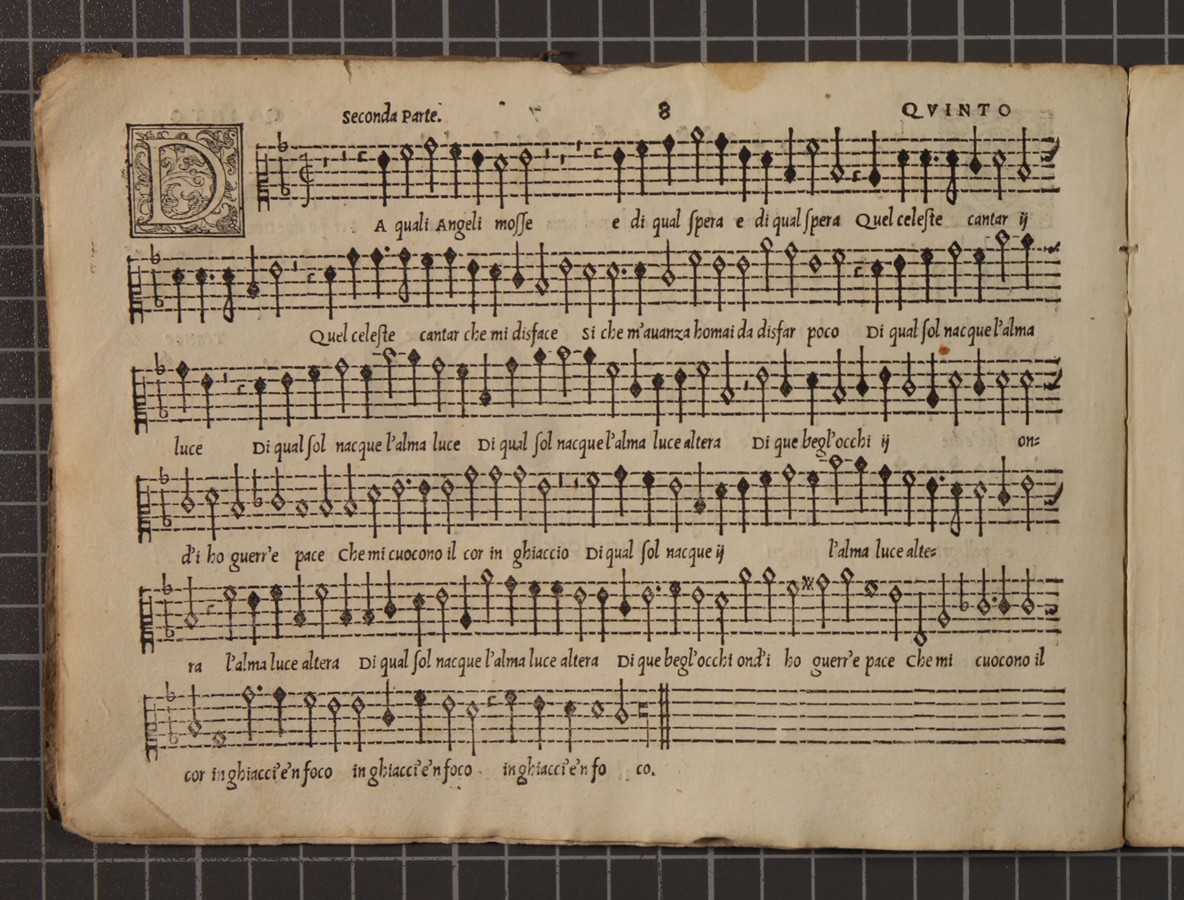 Seconda Parte. 8 QVINTO
DA quali Angeli moſſe e di qual ſpera e di qual ſpera Quel celeſte cantar ij
Quel celeſte cantar che mi disface Si che m'auanza homai da disfar poco Di qual ſol nacque l'alma
luce Di qual ſol nacque l'alma luce Di qual ſol nacque l'alma luce altera Di que begl'occhi ij on=
d'i ho guerr'e pace Che mi cuocono il cor in ghiaccio Di qual ſol nacque ij l'alma luce alte=
ra l'alma luce altera Di qual ſol nacque l'alma luce altera Di que begl'occhi ond'i ho guerr'e pace Che mi cuocono il
cor in ghiacci'e'n foco in ghiacci'e'n foco in ghiacci'e'n fo co.